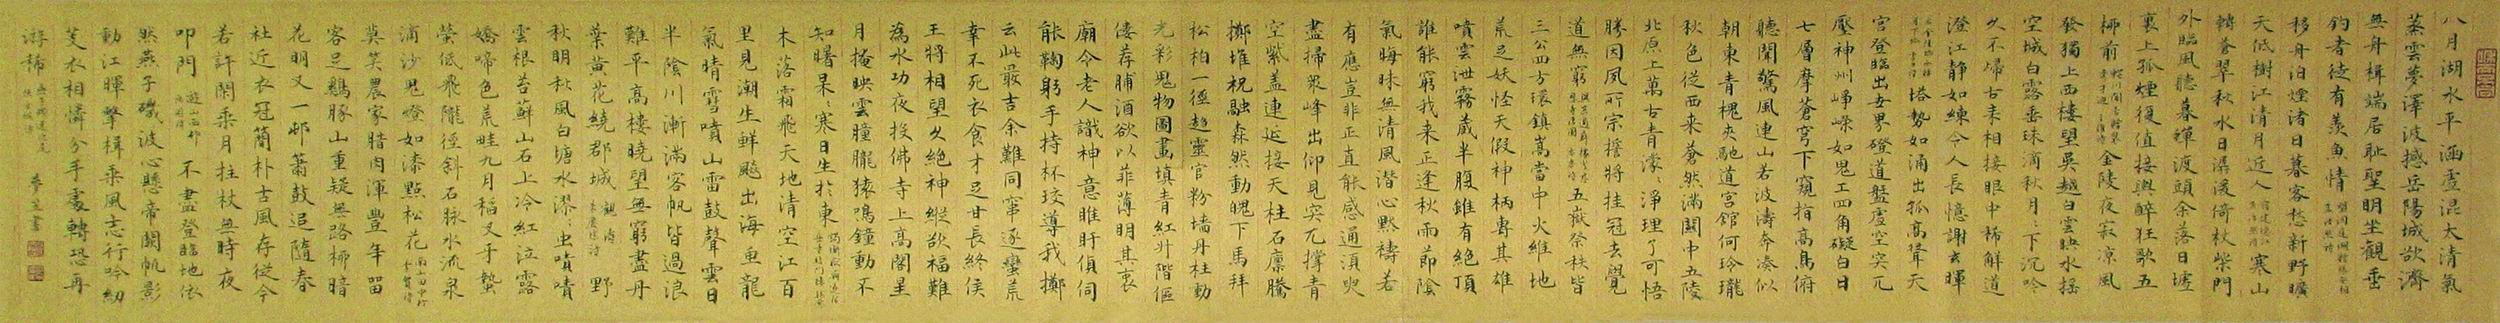 八月湖水平涵虛混太清氣
蒸雲夢澤波撼岳陽城欲濟
無舟楫端居恥聖明坐觀垂
釣者徒有羨魚情
移舟泊煙渚日暮客愁新野曠
天低樹江清月近人 寒山
轉蒼翠秋水日潺湲倚杖柴門
外臨風聽暮蟬渡頭餘落日墟
里上孤煙復值接輿醉狂歌五
柳前 金陵夜寂涼風
發獨上西樓望吳越白雲映水搖
空城白露垂珠滴秋月月下沉吟
久不歸古來相接眼中稀解道
澄江靜如練令人長憶謝玄暉
塔勢如湧出孤高聳天
宮登臨出世界磴道盤虛空突兀
壓神州崢嶸如鬼工四角礙白日
七層摩蒼穹下窺指高鳥俯
聽聞驚風連山若波濤奔湊似
朝東青槐夾馳道宮館何玲瓏
秋色從西來蒼然滿關中五陵
北原上萬古青濛濛淨理了可悟
勝因夙所宗誓將挂冠去覺
道無窮 五嶽祭秩皆
三公四方環鎮嵩當中火維地
荒足妖怪天假神柄專其雄
噴雲泄霧藏半腹雖有絕頂
誰能窮我來正逢秋雨節陰
氣晦昧無清風潛心默禱若
有應豈非正直能感通須臾
盡掃衆峰出仰見突兀撐青
空紫蓋連延接天柱石廩騰
擲堆祝融森然動魄下馬拜
松柏一徑趨靈宮粉墻丹柱動
光彩鬼物圖畫填青紅升階傴
僂荐脯酒欲以菲薄明其衷
廟令老人識神意睢盱偵伺
能鞠躬手持杯珓導我擲
云此最吉餘難同竄逐蠻荒
幸不死衣食才足甘長終侯
王將相望久絕神縱欲福難
為功夜投佛寺上高閣星
月掩映雲朣朧猿鳴鐘動不
知曙杲杲寒日生於東
木落霜飛天地清空江百
里見潮生鮮飈出海魚龍
氣晴雪噴山雷鼓聲雲日
半陰川漸滿客帆皆過浪
難平高樓曉望無窮盡丹
葉黃花繞郡城 野
秋明秋風白塘水漻漻虫嘖嘖
雲根苔蘚山石上冷紅泣露
嬌啼色荒畦九月稻叉牙蟄
螢低飛隴徑斜石脉水流泉
滴沙鬼燈如漆點松花
莫笑農家臘酒渾豐年留
客足鷄豚山重疑無路柳暗
花明又一邨簫鼓追隨春
社近衣冠簡朴古風存從今
若許閑乘月拄杖無時夜
叩門 不盡登臨地依
然燕子磯波心懸帝闕帆影
動江暉擊楫乘風志行吟紉
芰衣相憐分手處轉恐再
游稀